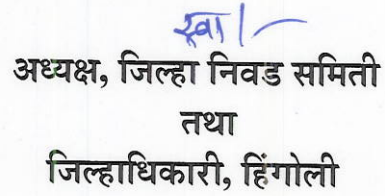 स्वा/-
अध्यक्ष, जिल्हा निवड समिती
तथा
जिल्हाधिकारी, हिंगोली